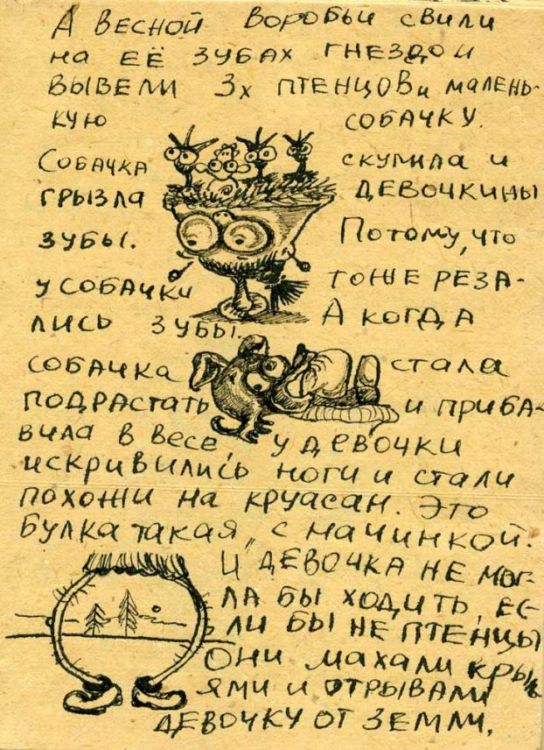 А весной воробьи свили
на её зубах гнездо и
вывели 3х птенцов и малень-
кую собачку.
Собачка скулила и
грызла девочкины
зубы. Потому, что
у собачки тоже реза-
лись зубы. А когда
собачка стала
подрастать и приба-
вила в весе у девочки
искривились ноги и стали
похожи на круасан. Это
булка такая, с начинкой.
И девочка не мог-
ла бы ходить, ес-
ли бы не птенцы
Они махали крыль
ями и отрывали
девочку от земли,